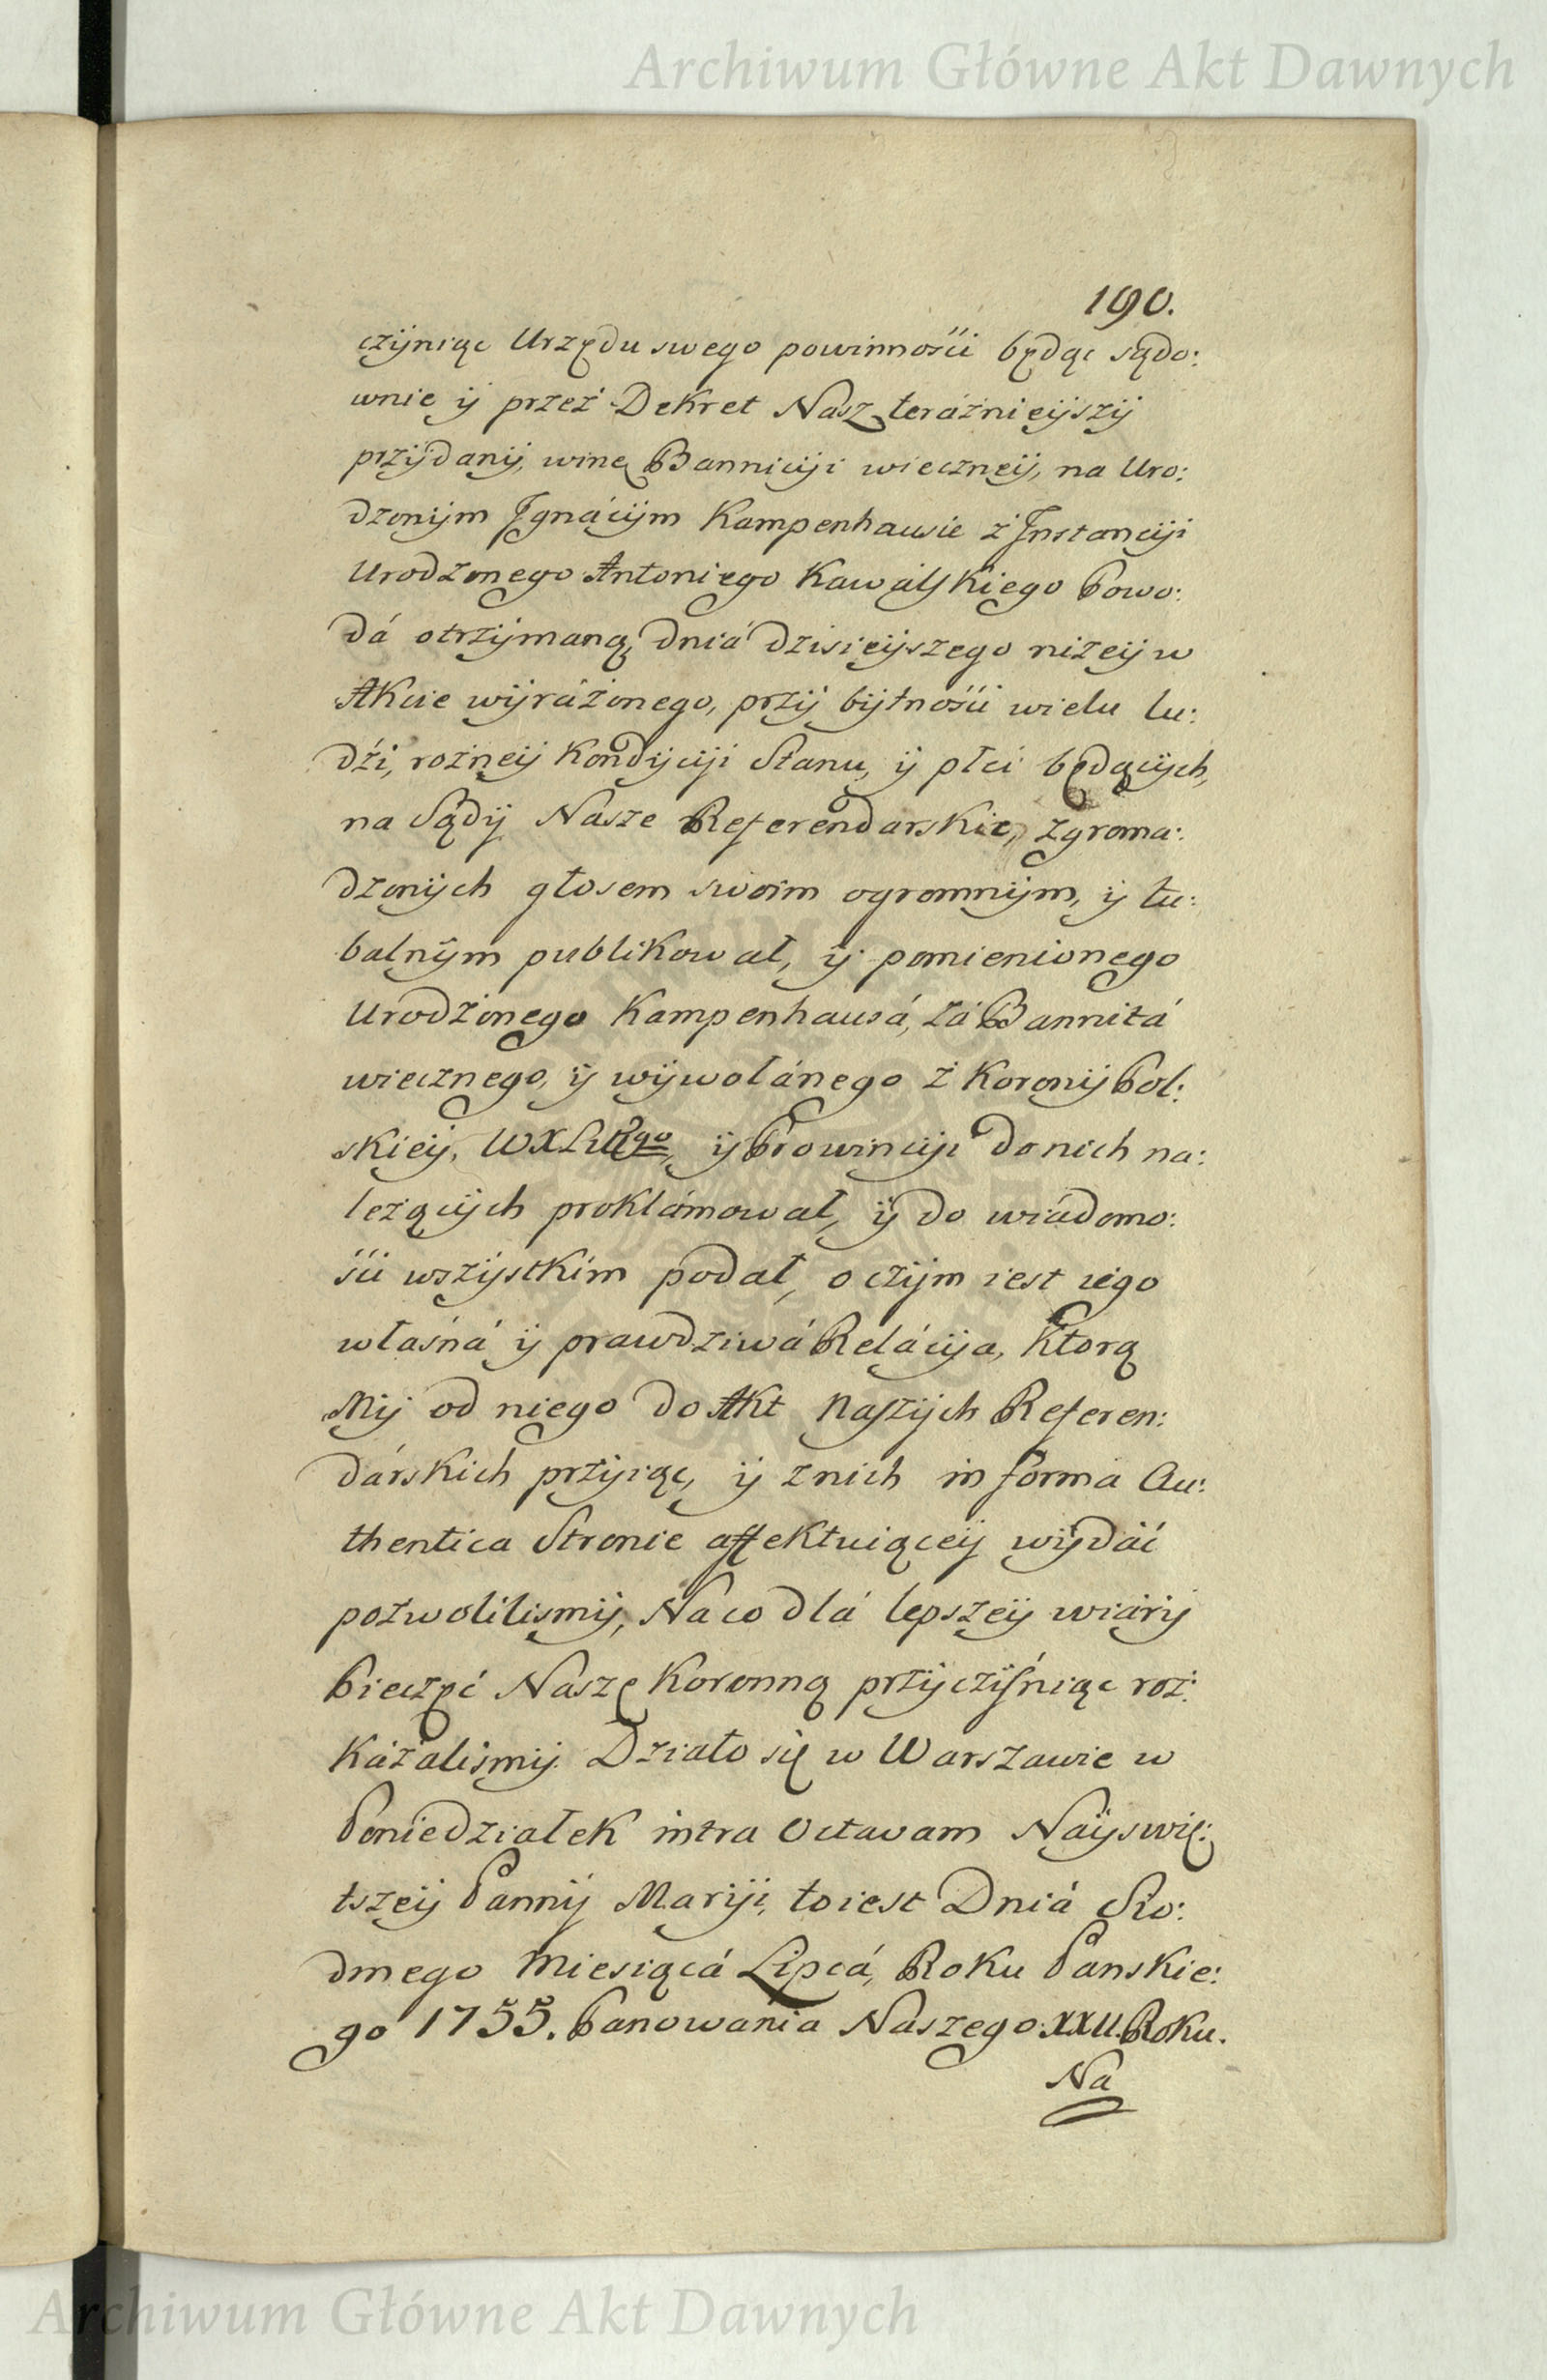 Archiwum Główne Akt Dawnych
190.
czyniąc Urzędu swego powinnośći będąc sądo:
wnie ÿ przez Dekret Nasz teráznieÿszÿ
przÿdanÿ, winę Bannicÿi wieczneÿ, na Uro:
dzonÿm Ignácÿm Kampenhausie z Instancÿi
Urodzonego Antoniego Kawálskiego Powo:
dá otrzÿmaną, dniá dzisieÿszego nizeÿ w
Akcie wÿrázonego, przÿ bÿtnośći wielu lu:
dźi, rozneÿ Kondÿcÿi Stanu, ÿ płci będącÿch,
na Sądÿ Nasze Referendarskie, zgroma:
dzonÿch głosem swoim ogromnÿm, ÿ tu:
balnÿm publikował, ÿ pomienionego
Urodzonego Kampenhausá, zá Bannitá
wiecznego, ÿ wÿwołánego z Koronÿ Pol:
skieÿ, WXLittgo, ÿ Prowincÿi do nich na:
lezącÿch proklámował, ÿ do wiádomo:
śći wszÿstkim podał, o czÿm iest iego
własná ÿ prawdziwá Relácÿa, Którą
Mÿ od niego do Akt Naszÿch Referen:
dárskich przÿiąc, ÿ z nich in forma Au:
thentica Stronie affektuiąceÿ wÿdáć
pozwolilismÿ, Na co dlá lepszeÿ wiárÿ
Pieczęć Naszę Koronną przÿcziśniąc roz:
Kázalismÿ. Działo się w Warszawie w
Poniedziałek intra Octavam Naÿswię:
tszeÿ Pannÿ Marÿi, to iest Dniá Sio:
dmego Miesiącá Lipcá, Roku Panskie:
go 1755. Panowania Naszego XXII. Roku.
Na
Archiwum Główne Akt Dawnych